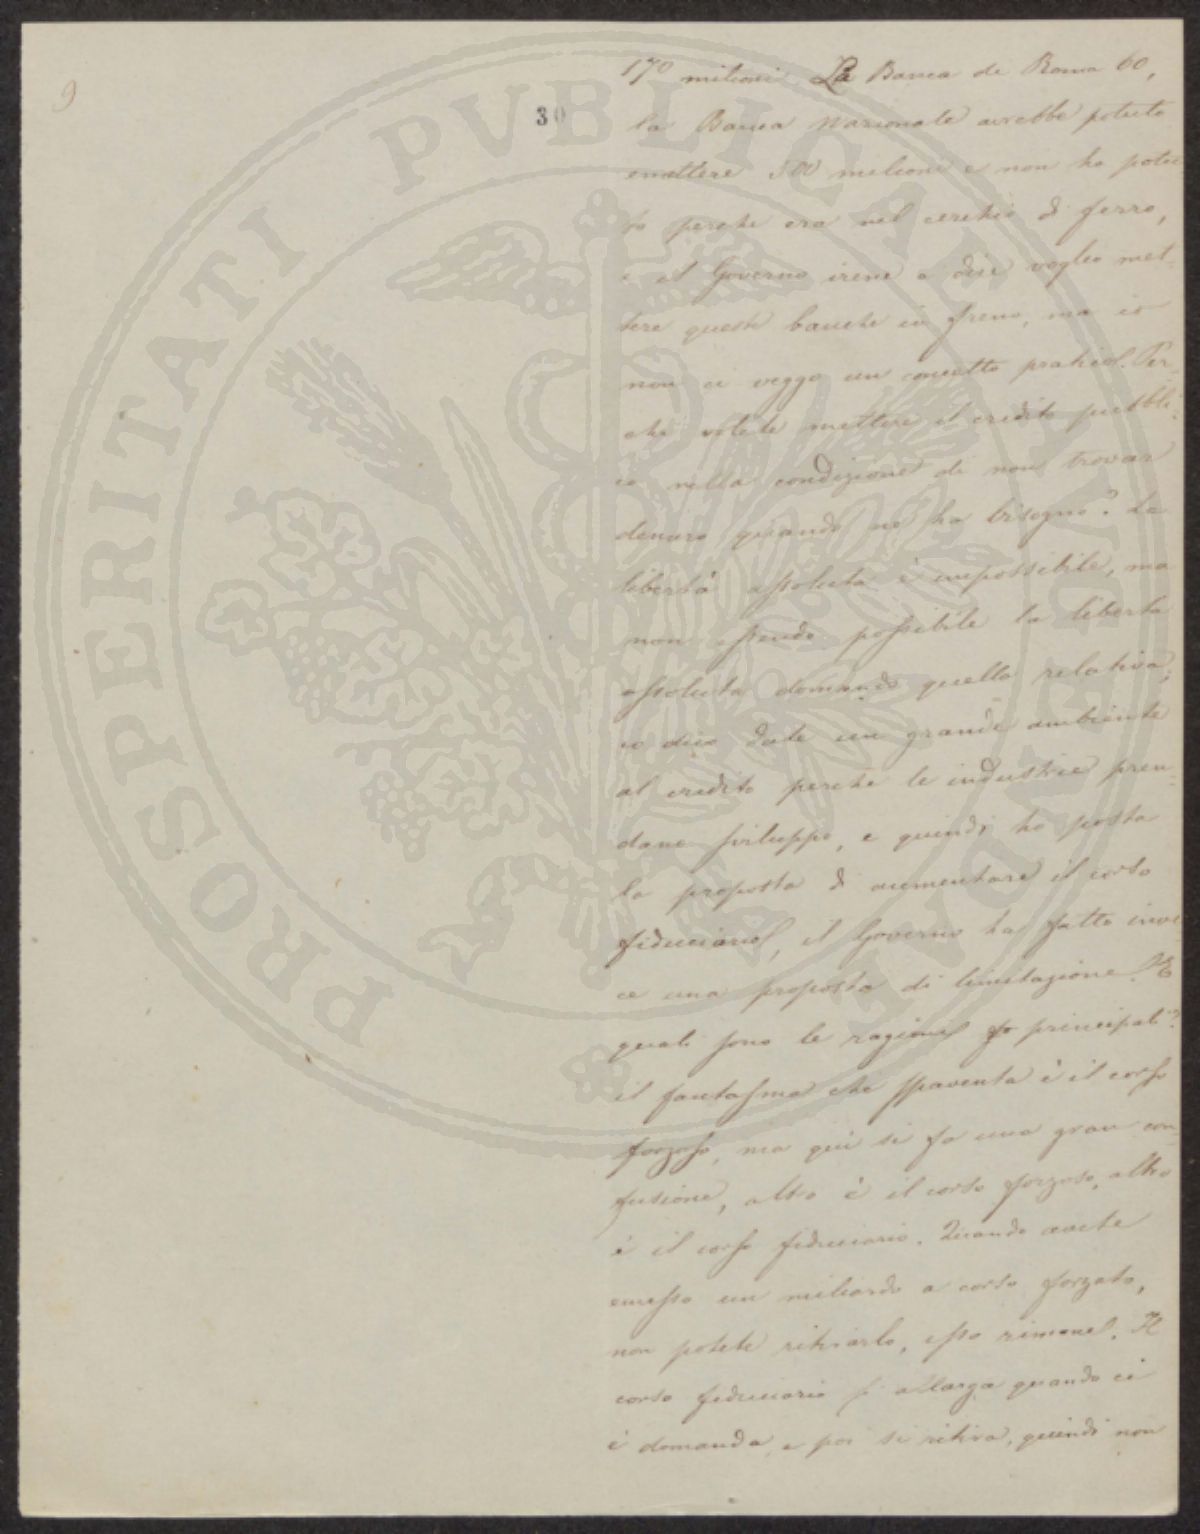 9
30
170 milioni La Banca di Roma 60,
la Banca Nazionale avrebbe potuto
emettere 500 milioni e non ha potu
to perchè era nel cerchio di ferro,
e il Governo viene e dice voglio met-
tere queste banche in freno, ma io
non ci veggo un concetto pratico. Per-
chè volete mettere il credito pubbli-
co nella condizione di non trovar
denaro quando ne ha bisogno? La
libertà assoluta è impossibile, ma
non essendo possibile la libertà
assoluta domando quella relativa,
io dico date un grande ambiente
al credito perchè le industrie pren-
dano sviluppo, e quindi ho posta
la proposta di aumentare il corso
fiduciario, il Governo ha fatto inve
ce una proposta di limitazione. E
quali sono le ragioni principali?
il fantasma che spaventa è il corso
forzoso, ma qui si fa una gran con
fusione, altro è il corso forzoso, altro
è il corso fiduciario. Quando avete
emesso un miliardo a corso forzato,
non potete ritirarlo, esso rimane. Il
corso fiduciario si allarga quando ci
è domanda, e poi si ritira, quindi non
PROSPERITATI PVBLICAE